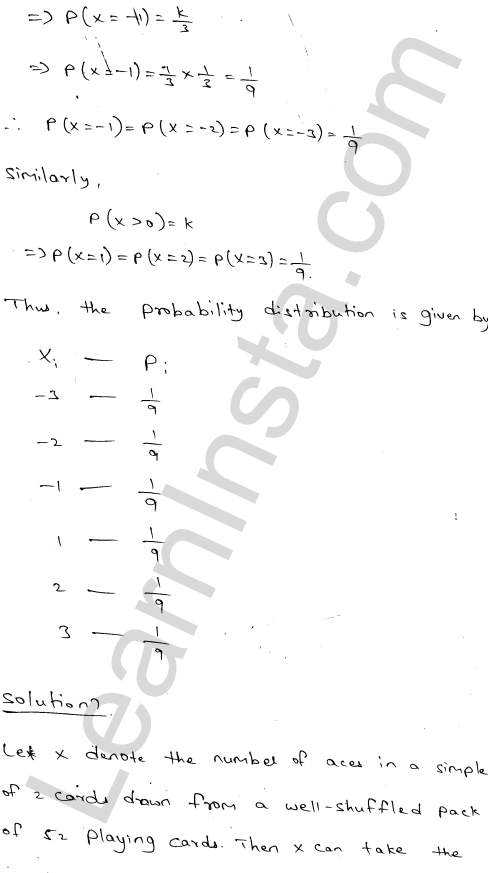 => P(x = -1) = k/3
=> P(x = -1) = 1/3 × 1/3 = 1/9
∴ P(x=-1) = P(x=-2) = P(x=-3) = 1/9
Similarly,
P(x>0) = k
=> P(x=1) = P(x=2) = P(x=3) = 1/9.
Thus, the probability distribution is given by
Xi — Pi
-3 — 1/9
-2 — 1/9
-1 — 1/9
1 — 1/9
2 — 1/9
3 — 1/9
Solution7.
Let x denote the number of aces in a simple
of 2 cards drawn from a well-shuffled pack
of 52 playing cards. Then x can take the
LearnInsta.com